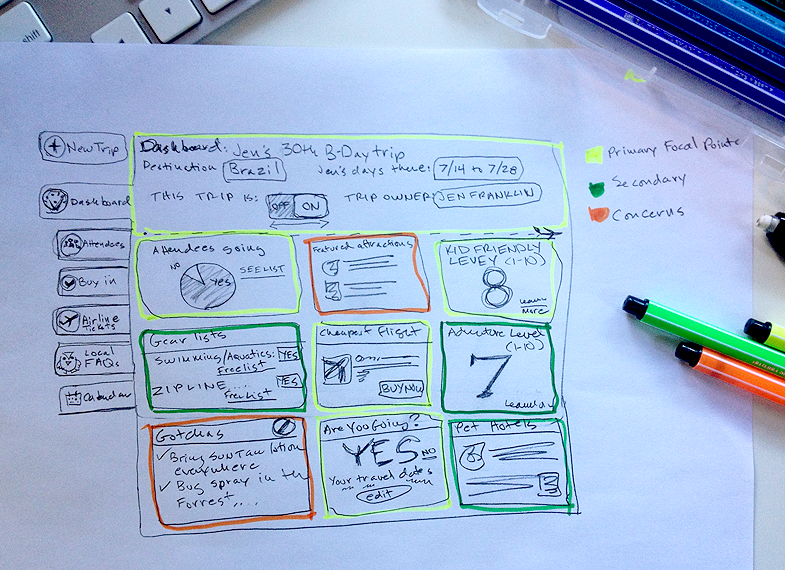 shift
New Trip
Dashboard
Attendees
Buy in
Airline
Tickets
Local
FAQs
Calendar
Dashboard: Jen's 30th B-Day trip
Destination Brazil
Jen's days there: 7/14 to 7/28
THIS TRIP IS: OFF ON
TRIP OWNER: JEN FRANKLIN
Attendees going
NO
YES
SEE LIST
Featured attractions
KID FRIENDLY
LEVEY (1-10)
8
Learn
More
Gear lists
Swimming/Aquatics: YES
Free list
ZIPLINE... YES
Free list
Cheapest Flight
BUY NOW
Adventure Level
(1-10)
7
Gotchas
Bring SunTan lotion
everywhere
Bug spray in the
Forrest....
Are You Going?
YES NO
Your travel dates
edit
Pet Hotels
Primary Focal Points
Secondary
Concerns